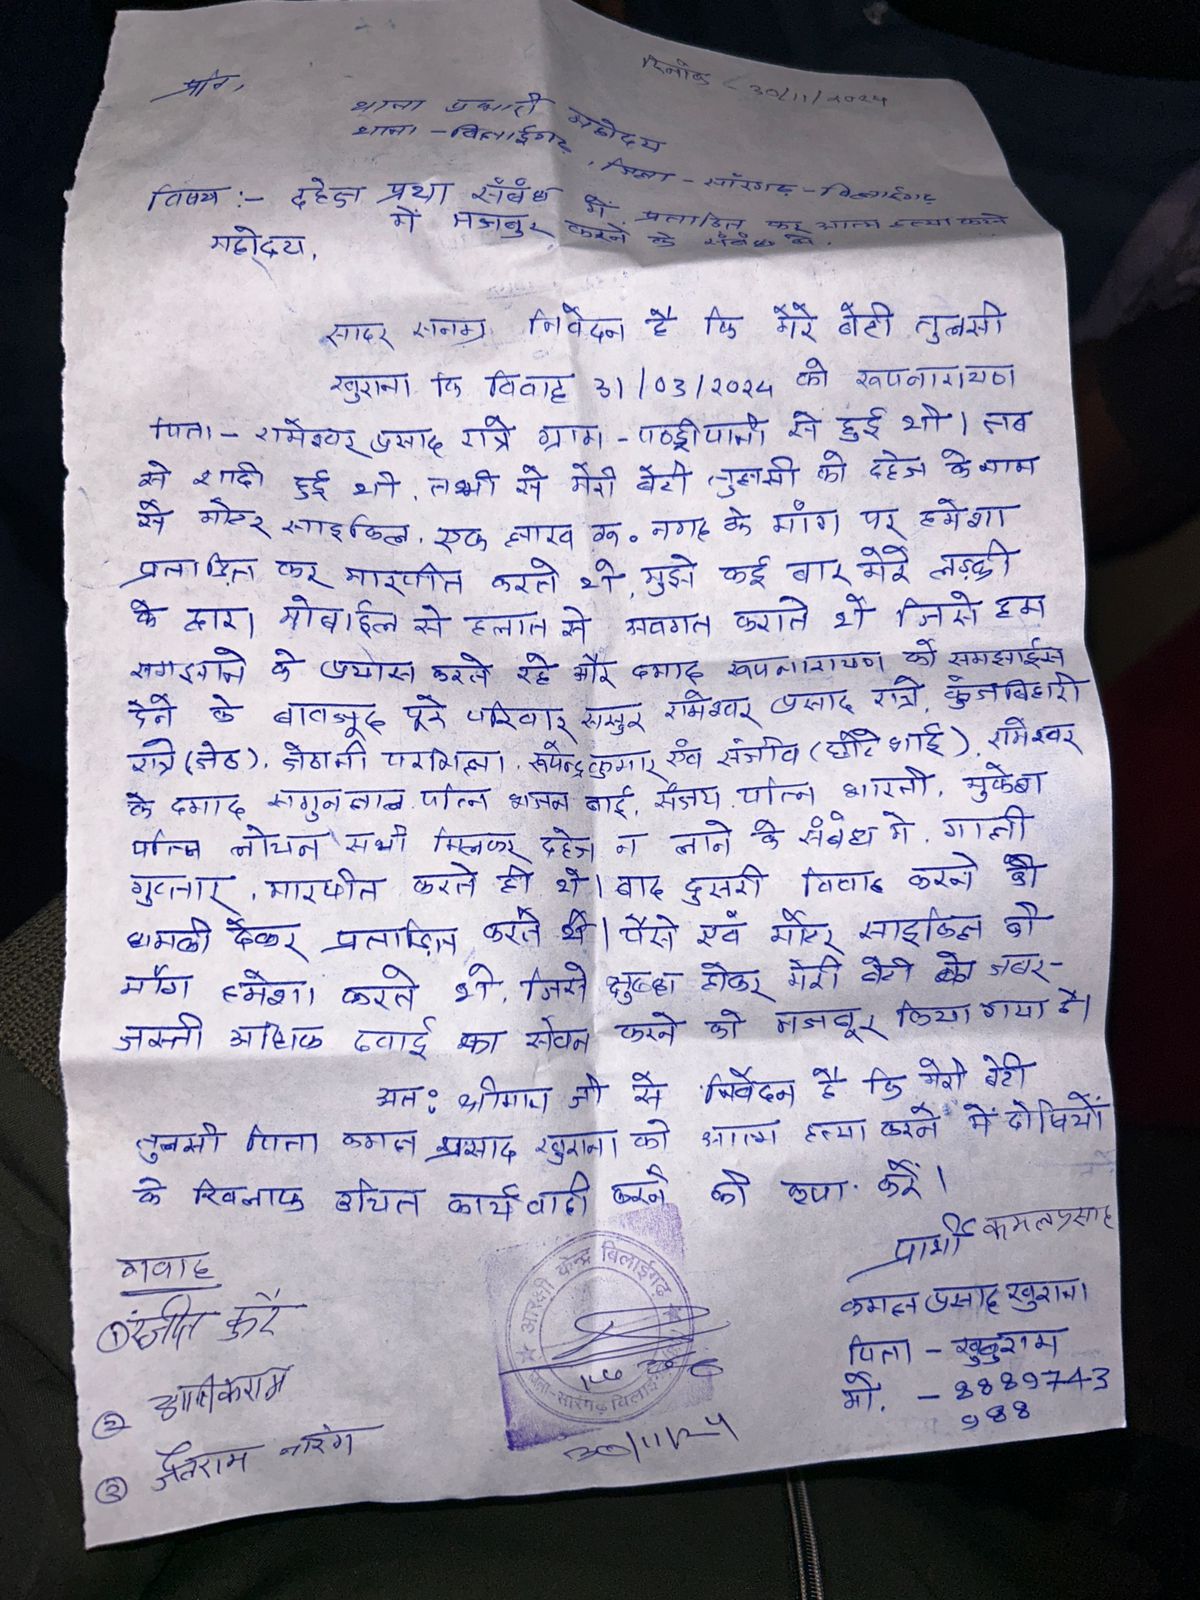 दिनांक 30/11/2024
प्रति,
थाना प्रभारी महोदय
थाना - बिलाईगढ़, जिला - सारंगढ़ - बिलाईगढ़
विषय :- दहेज प्रथा संबंध में प्रताड़ित कर आत्म हत्या करने
में मजबुर करने के संबंध में.
महोदय,
सादर सनम्र निवेदन है कि मेरे बेटी तुलसी
खुराना कि विवाह 31/03/2024 को रूपनारायण
पिता - रामेश्वर प्रसाद रात्रे ग्राम - पण्ड्रीपानी से हुई थी। जब
से शादी हुई थी, तभी से मेरी बेटी तुलसी को दहेज के नाम
से मोटर साइकिल, एक लाख रू. नगद के मांग पर हमेशा
प्रताड़ित कर मारपीट करते थे, मुझे कई बार मेरे लड़की
के द्वारा मोबाईल से हलात से अवगत कराते थे जिसे हम
समझाने के प्रयास करते रहे और दमाद रूपनारायण को समझाईस
देने के बावजूद पूरे परिवार ससुर रामेश्वर प्रसाद रात्रे, कुंजबिहारी
रात्रे (जेठ), जेठानी परमिला, रूपेन्द्र कुमार एवं संजीव (छोटे भाई), रामेश्वर
के दमाद सगुनलाल पत्नि भजन बाई, संजय पत्नि भारती, मुकेश
पत्नि लोचन सभी मिलकर दहेज न लाने के संबंध मे, गाली
गुप्तार, मारपीट करते ही थे। बाद दुसरी विवाह करने की
धमकी देकर प्रताड़ित करते थे। पैसे एवं मोटर साइकिल की
माँग हमेशा करते थे, जिसे क्षुब्ध होकर मेरी बेटी को जबर-
जस्ती अधिक दवाई का सेवन करने को मजबूर किया गया है।
अत: श्रीमान जी से निवेदन है कि मेरी बेटी
तुलसी पिता कमल प्रसाद खुराना को आत्म हत्या करने में दोषियों
के खिलाफ उचित कार्यवाही करने की कृपा करें।
प्रार्थी कमलप्रसाद
गवाह
कमल प्रसाद खुराना
① रंजीत कुर्रे
पिता - खुबुराम
मो. - 8889743
988
②
③ जैतराम नारंग
आरक्षी केन्द्र बिलाईगढ़
जिला-सारंगढ़ बिलाईगढ़
30/11/24